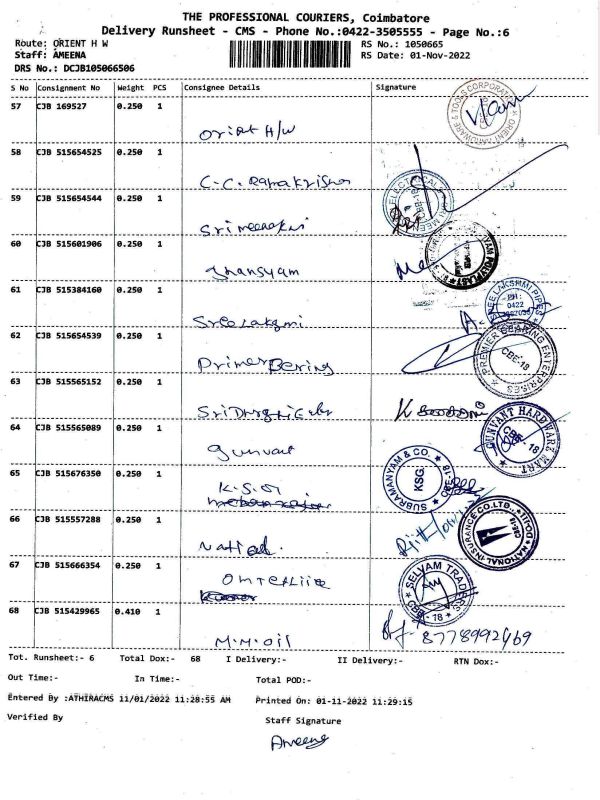 THE PROFESSIONAL COURIERS, Coimbatore
Delivery Runsheet - CMS - Phone No.:0422-3505555 - Page No.:6
Route: ORIENT H W RS No.: 1050665
Staff: AMEENA RS Date: 01-Nov-2022
DRS No.: DCJB105066506
S No Consignment No Weight PCS Consignee Details Signature
57 CJB 169527 0.250 1
Orient H/W
58 CJB 515654525 0.250 1
C.C. Ramakrishna
59 CJB 515654544 0.250 1
Sri meenakshi
60 CJB 515601906 0.250 1
Ghansyam
61 CJB 515384160 0.250 1
Sree Lakzmi
SREE LAKSHMI PIPES
PH: 0422
62 CJB 515654539 0.250 1
Primer Bering
PREMIER BEARING ENTERPRISES
CBE-18
63 CJB 515565152 0.250 1
64 CJB 515565089 0.250 1
Gunvant
GUNVANT HARDWARE MART
CBE - 18
65 CJB 515676350 0.250 1
K.S.G
SUBRAMANYAM & CO.
KSG
CBE-18
66 CJB 515557288 0.250 1
NATIONAL INSURANCE CO.LTD.
67 CJB 515666354 0.250 1
SELVAM TRADERS
68 CJB 515429965 0.410 1
M.M.Oil
Tot. Runsheet:- 6 Total Dox:- 68 I Delivery:- II Delivery:- RTN Dox:-
Out Time:- In Time:- Total POD:-
Entered By :ATHIRACMS 11/01/2022 11:28:55 AM Printed On: 01-11-2022 11:29:15
Verified By Staff Signature
Ameena